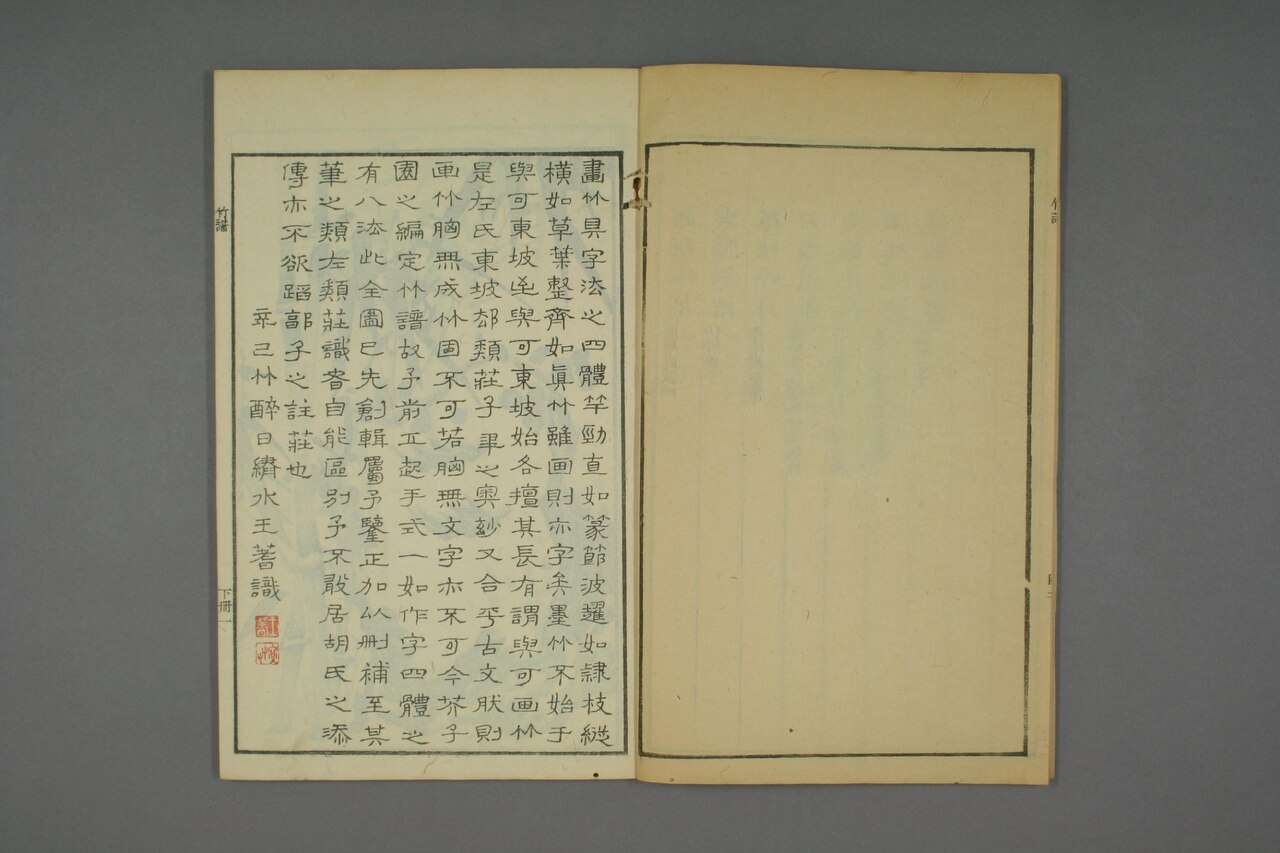 畫竹具字法之四體竿勁直如篆節波邅如隸枝縱
橫如草葉整齊如眞竹雖画則亦字矣墨竹不始于
與可東坡迨與可東坡始各擅其長有謂與可画竹
是左氏東坡却類莊子畢之奥玅又合乎古文肰則
画竹胸無成竹固不可若胸無文字亦不可今芥子
園之編定竹譜故予前工起手式一如作字四體之
有八法此全圖已先創輯屬予鑒正加以刪補至其
筆之類左類莊識者自能區別予不敢居胡氏之添
傳亦不欲蹈郭子之註莊也
辛巳竹醉日繡水王蓍識
竹譜
下冊一